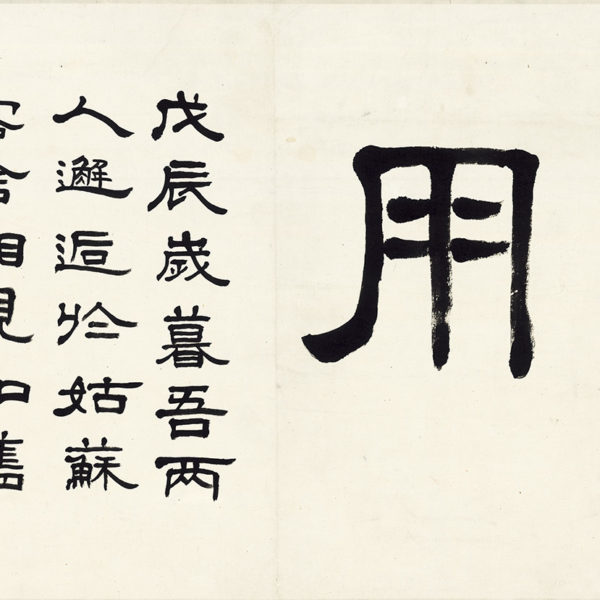 用
戊辰歲暮吾两
人邂逅於姑蘇
客舍相見如舊